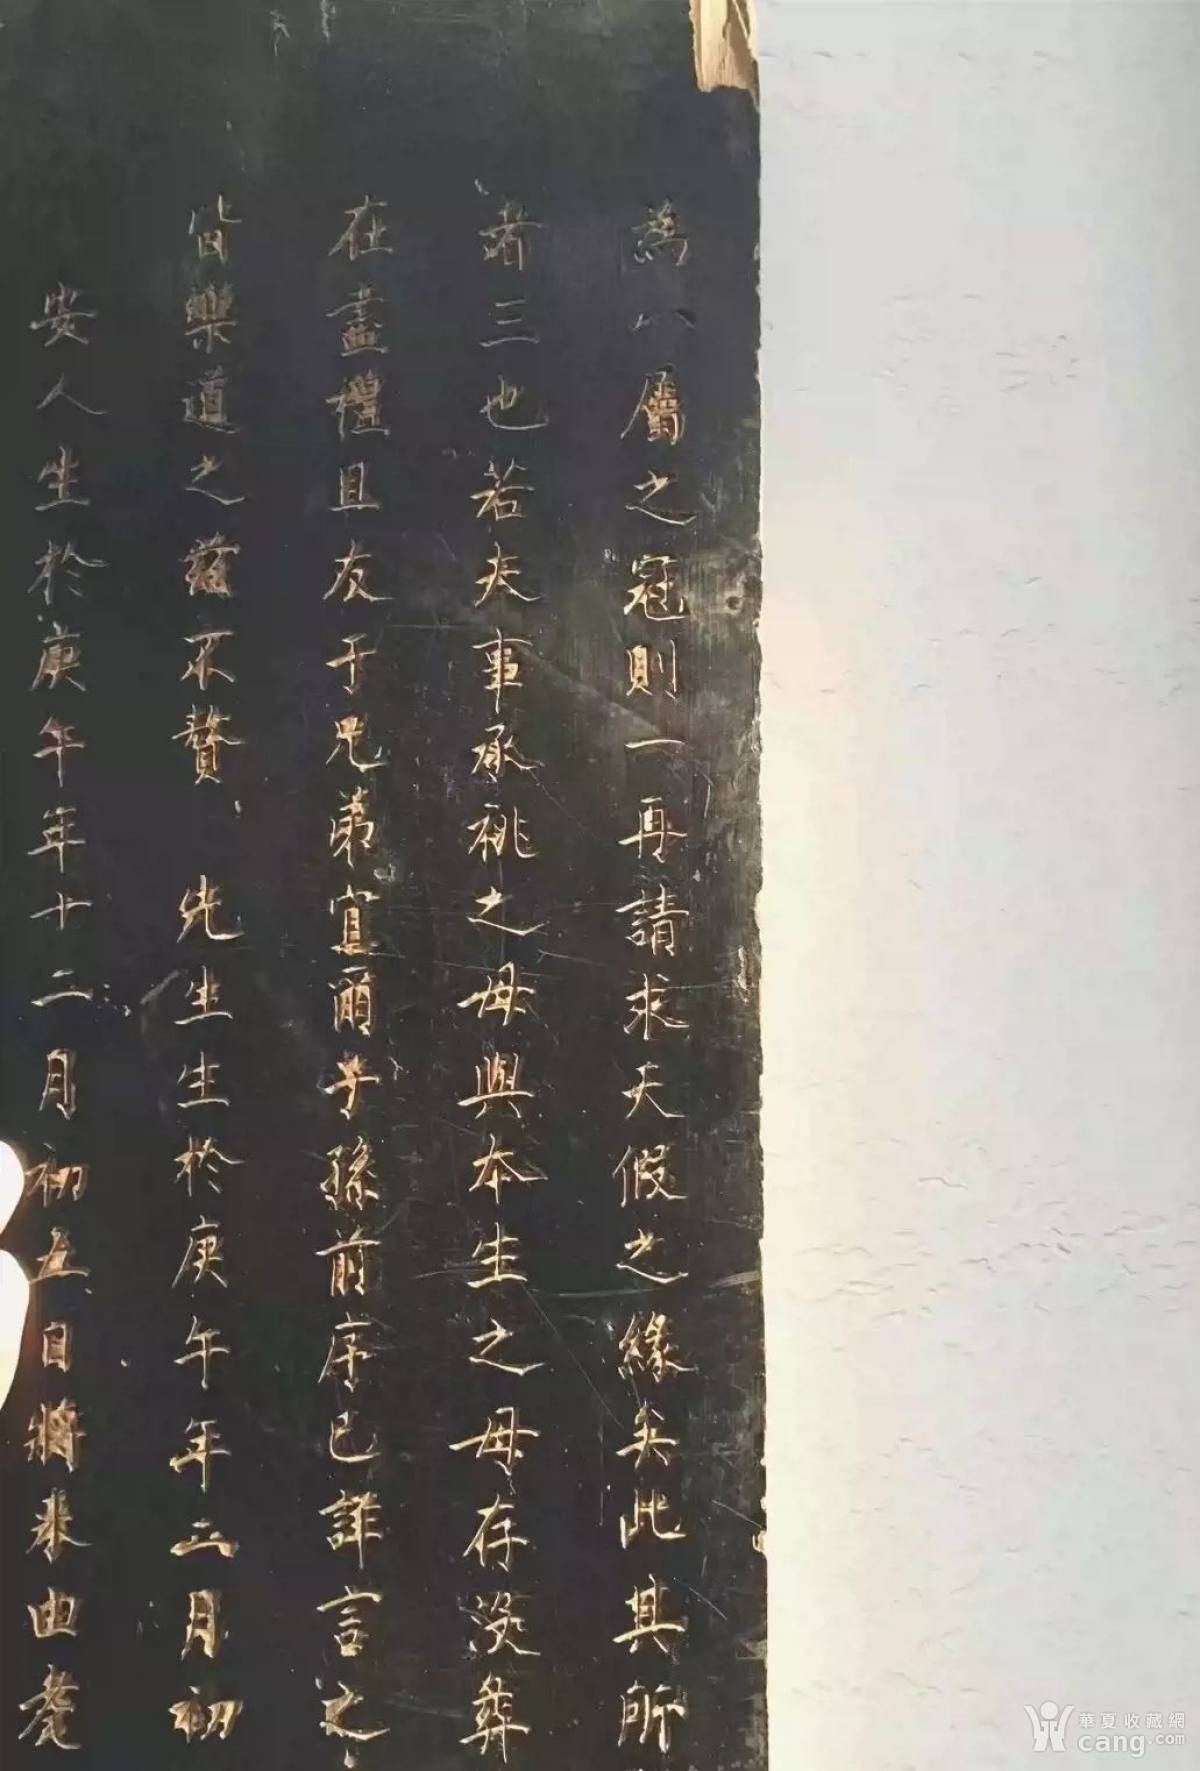 為八屬之冠則一再請求天假之緣矣此其所
者三也若夫事承祧之母與本生之母存沒葬
在盡禮且友于兄弟宜爾子孫前序已詳言之
皆樂道之茲不贅 先生生於庚午年二月初
安人生於庚午年十二月初五日將來由耄
華夏收藏網
cang.com